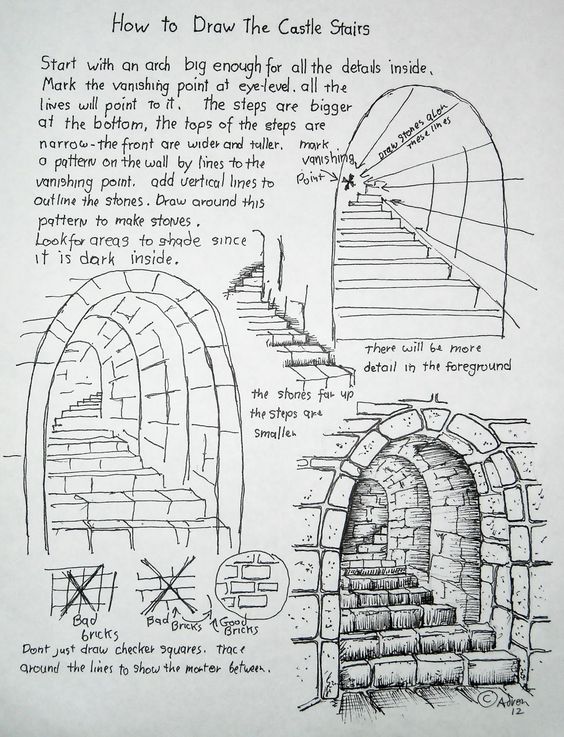 How to Draw The Castle Stairs
Start with an arch big enough for all the details inside.
Mark the vanishing point at eye-level. all the
lives will point to it. The steps are bigger
at the bottom, the tops of the steps are
narrow-the front are wider and taller.
a pattern on the wall by lines to the
vanishing point. add vertical lines to
outline the stones. Draw around this
pattern to make stones.
Look for areas to shade since
it is dark inside.
mark
vanishing
point
Draw stones alon
these lines
There will be more
detail in the foreground
the stones far up
the steps are
smaller
Bad
bricks
Bad
Bricks
Good
Bricks
Dont just draw checker squares. trace
around the lines to show the morter between.
© Adron
12